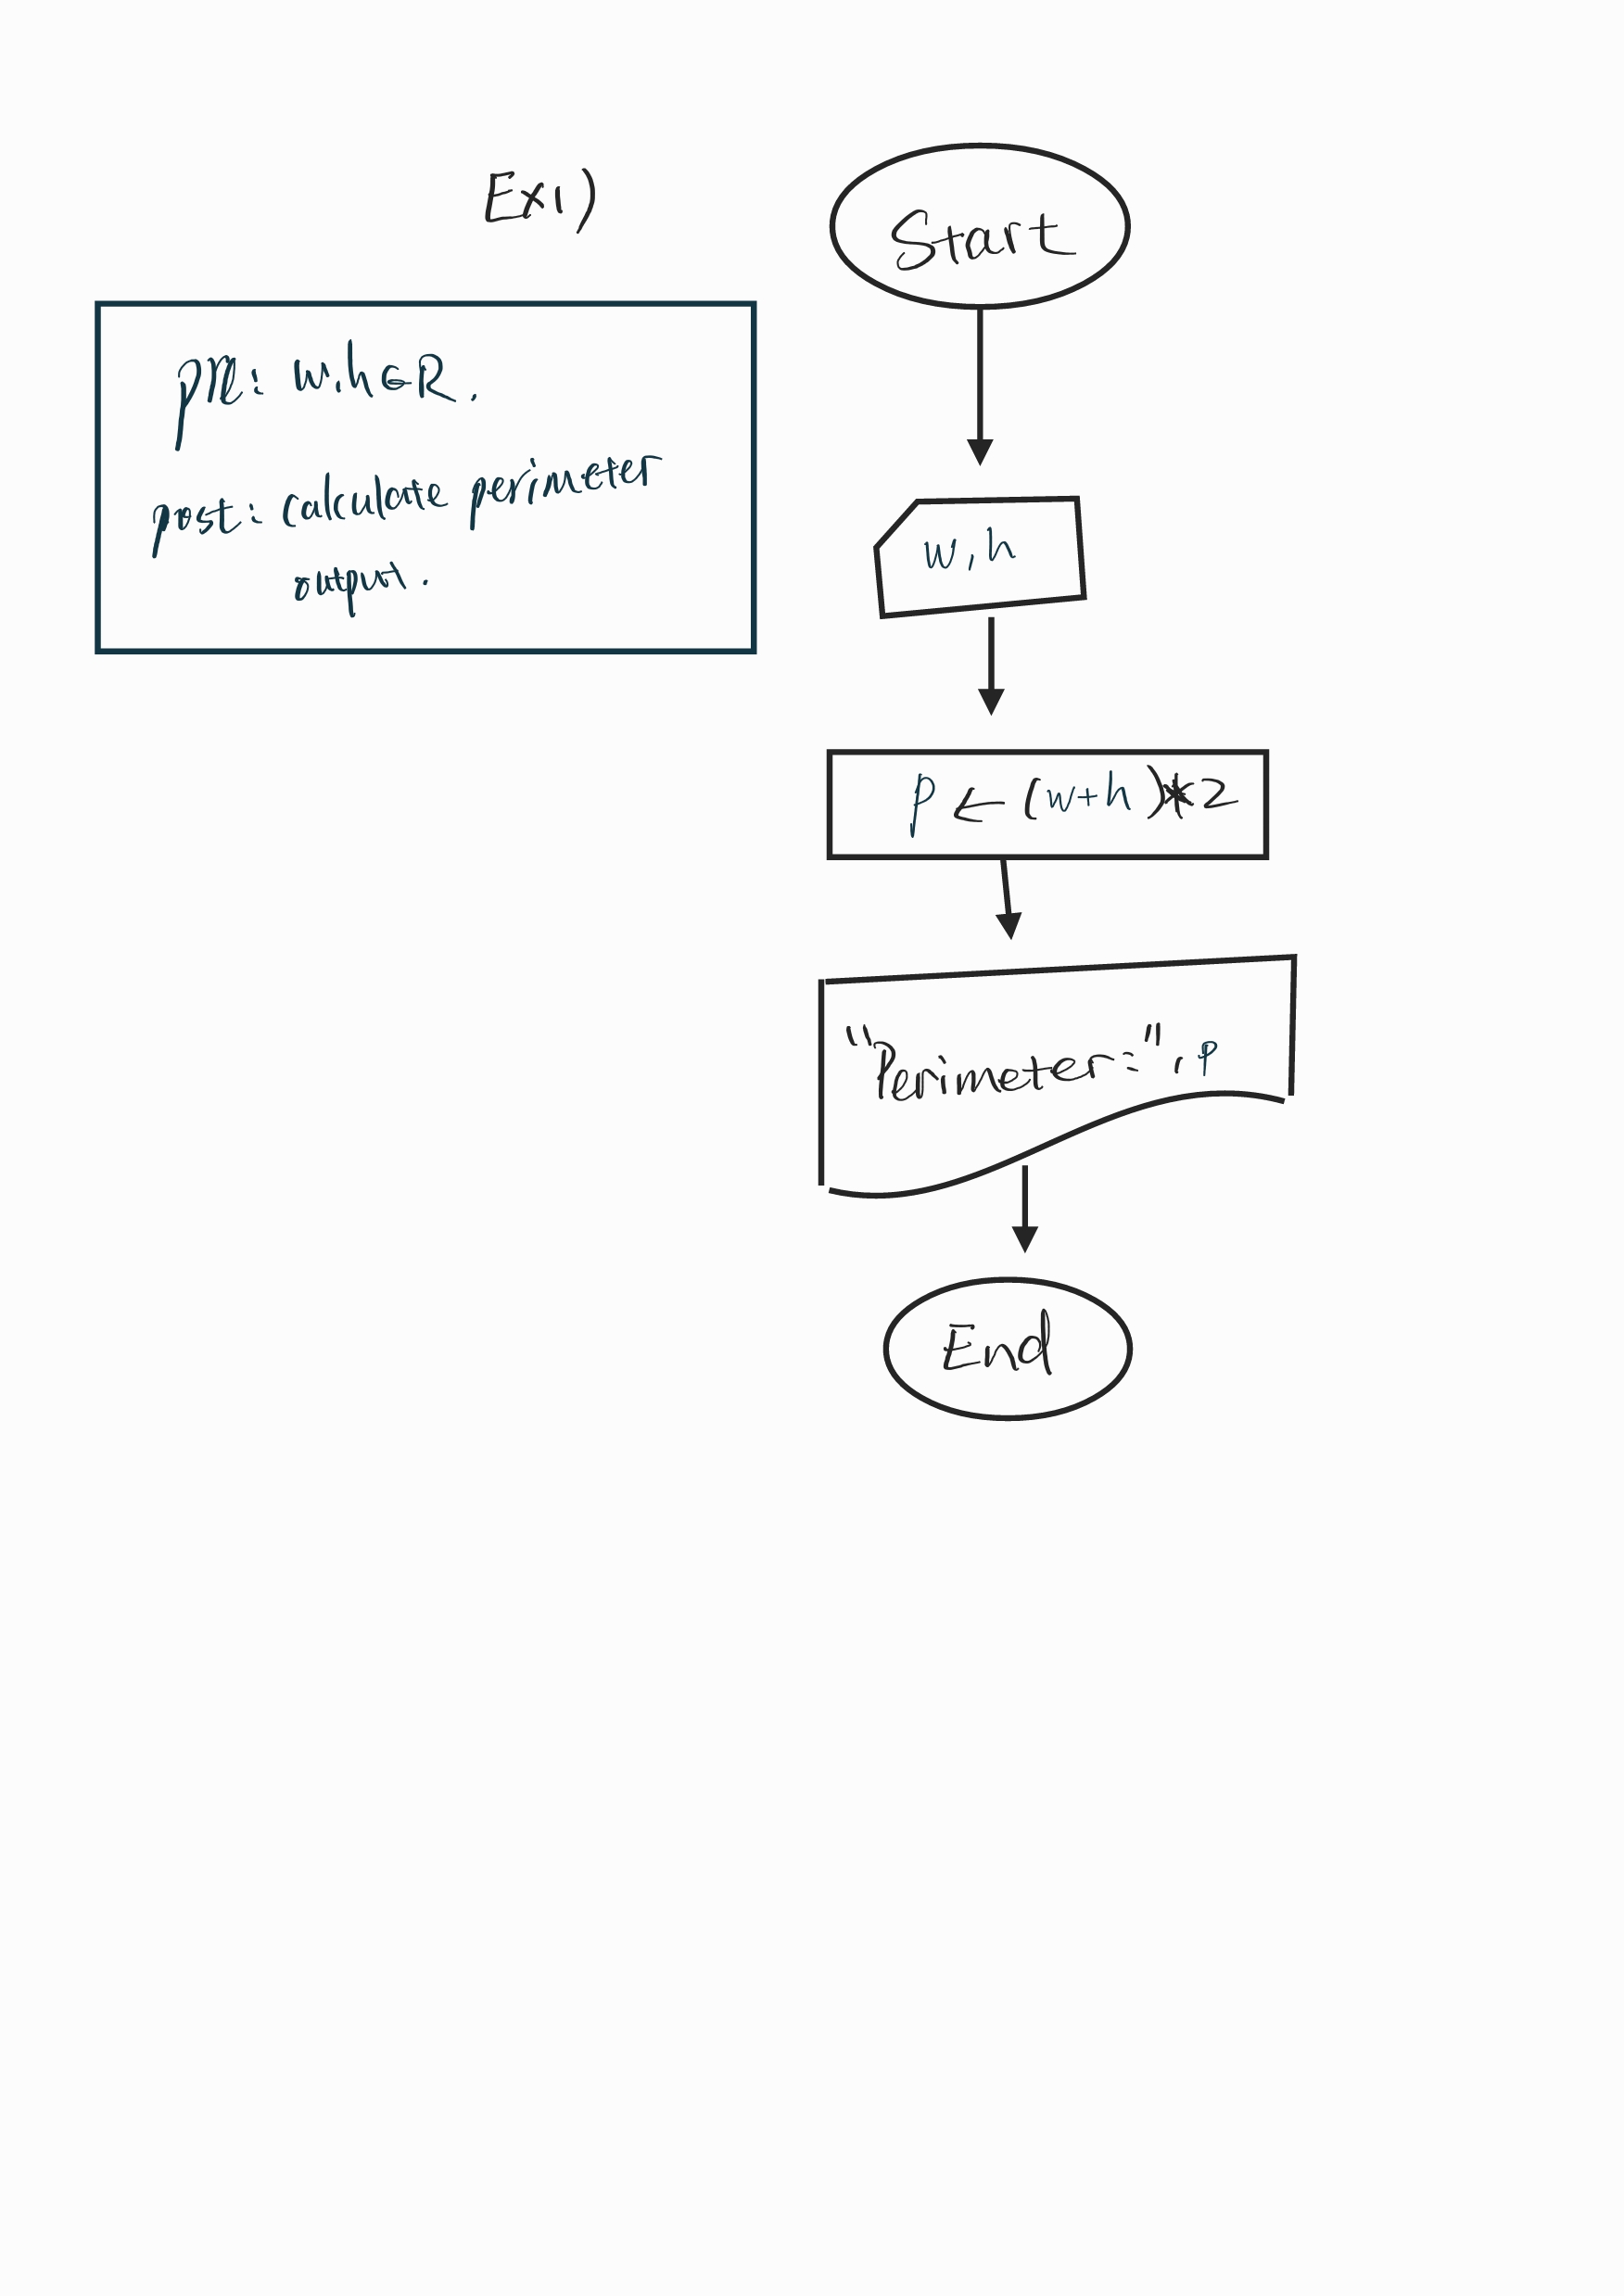 Ex1)
Start
pre: w,h∈R.
post: calculate perimeter
output.
w,h
p ← (w+h)*2
"Perimeter=", p
End